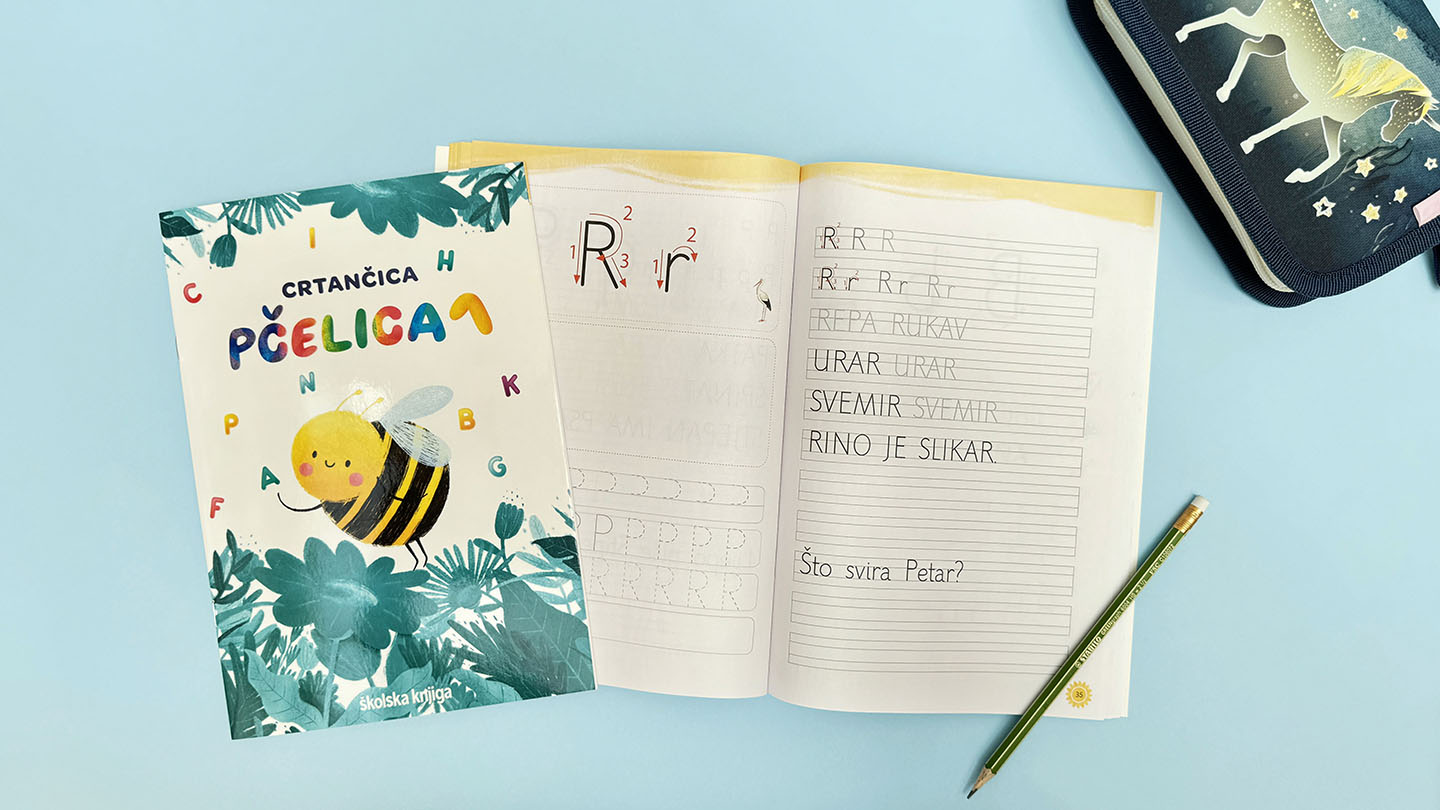 I
H
C
CRTANČICA
PČELICA 1
N
K
P
B
A
G
F
školska knjiga
R r
1 2 3
1 2
R R R
Rr Rr Rr
REPA RUKAV
URAR URAR
SVEMIR SVEMIR
RINO JE SLIKAR.
Što svira Petar?
35
P P P P P
R R R R R
STABILO